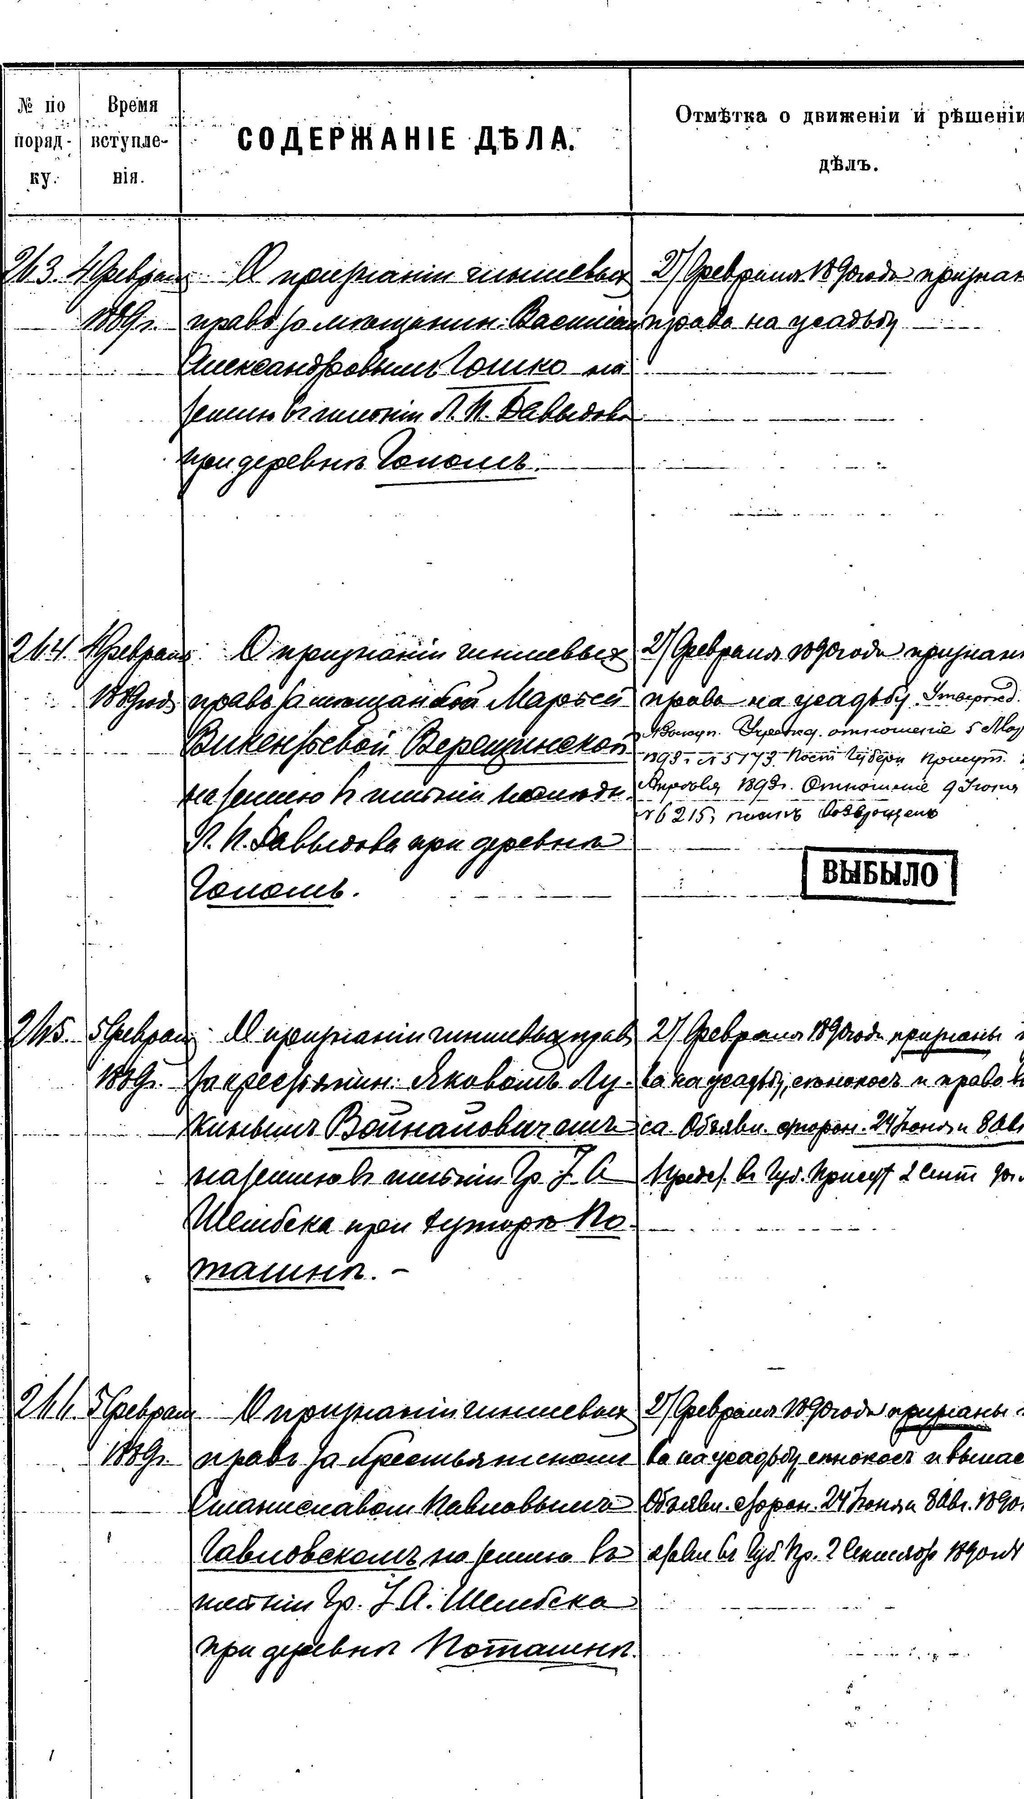 № по порядку.
Время вступленія.
СОДЕРЖАНІЕ ДѢЛА.
Отмѣтка о движеніи и рѣшеніи
дѣлъ.
263. 4 Феврал
1889 г.
О признаніи чиншевыхъ
правъ за мѣщанин. Василіем
Александровымъ Гошко на
землю въ имѣніи Л. П. Давыдова
при деревнѣ Гополъ.
27 Февраля 1890 года признан
права на усадьбу
264. 4 Феврал
1889 год
О признаніи чиншевых
правъ за мѣщанкой Марьей
Викентьевой Верещинской
на землю въ имѣніи
Л. П. Давыдова при деревнѣ
Гополъ.
27 Февраля 1890 года признан
права на усадьбу.
отношеніе 5 Мая
1893 г. № 5173. Губерн. Присут.
1893 г. Отношеніе 9 Іюня
№ 6215, возвращенъ
ВЫБЫЛО
265. 5 Феврал
1889 г.
О признаніи чиншевыхъ прав
за крестьянин. Яковомъ Лу-
кинымъ Войналовичемъ
на землю въ имѣніи Гр. І. А.
Шембека при хуторѣ По-
ташнѣ. —
27 Февраля 1890 года признаны п
ва на усадьбу, сѣнокосъ и право в
са. Объявл. сторон. 24 Іюня и 8 Авг
въ Губ. Присут 2 Сент 90
266. 5 Феврал
1889 г.
О признаніи чиншевых
правъ за крестьянином
Станиславом Павловымъ
Гавловскомъ на землю въ
имѣніи Гр. І. А. Шембека
при деревнѣ Поташнѣ.
27 Февраля 1890 года признаны п
ва на усадьбу, сѣнокосъ и выпас
Объявл. сторон. 24 Іюня и 8 Авг. 1890
въ Губ Пр. 2 Сентябр 1890